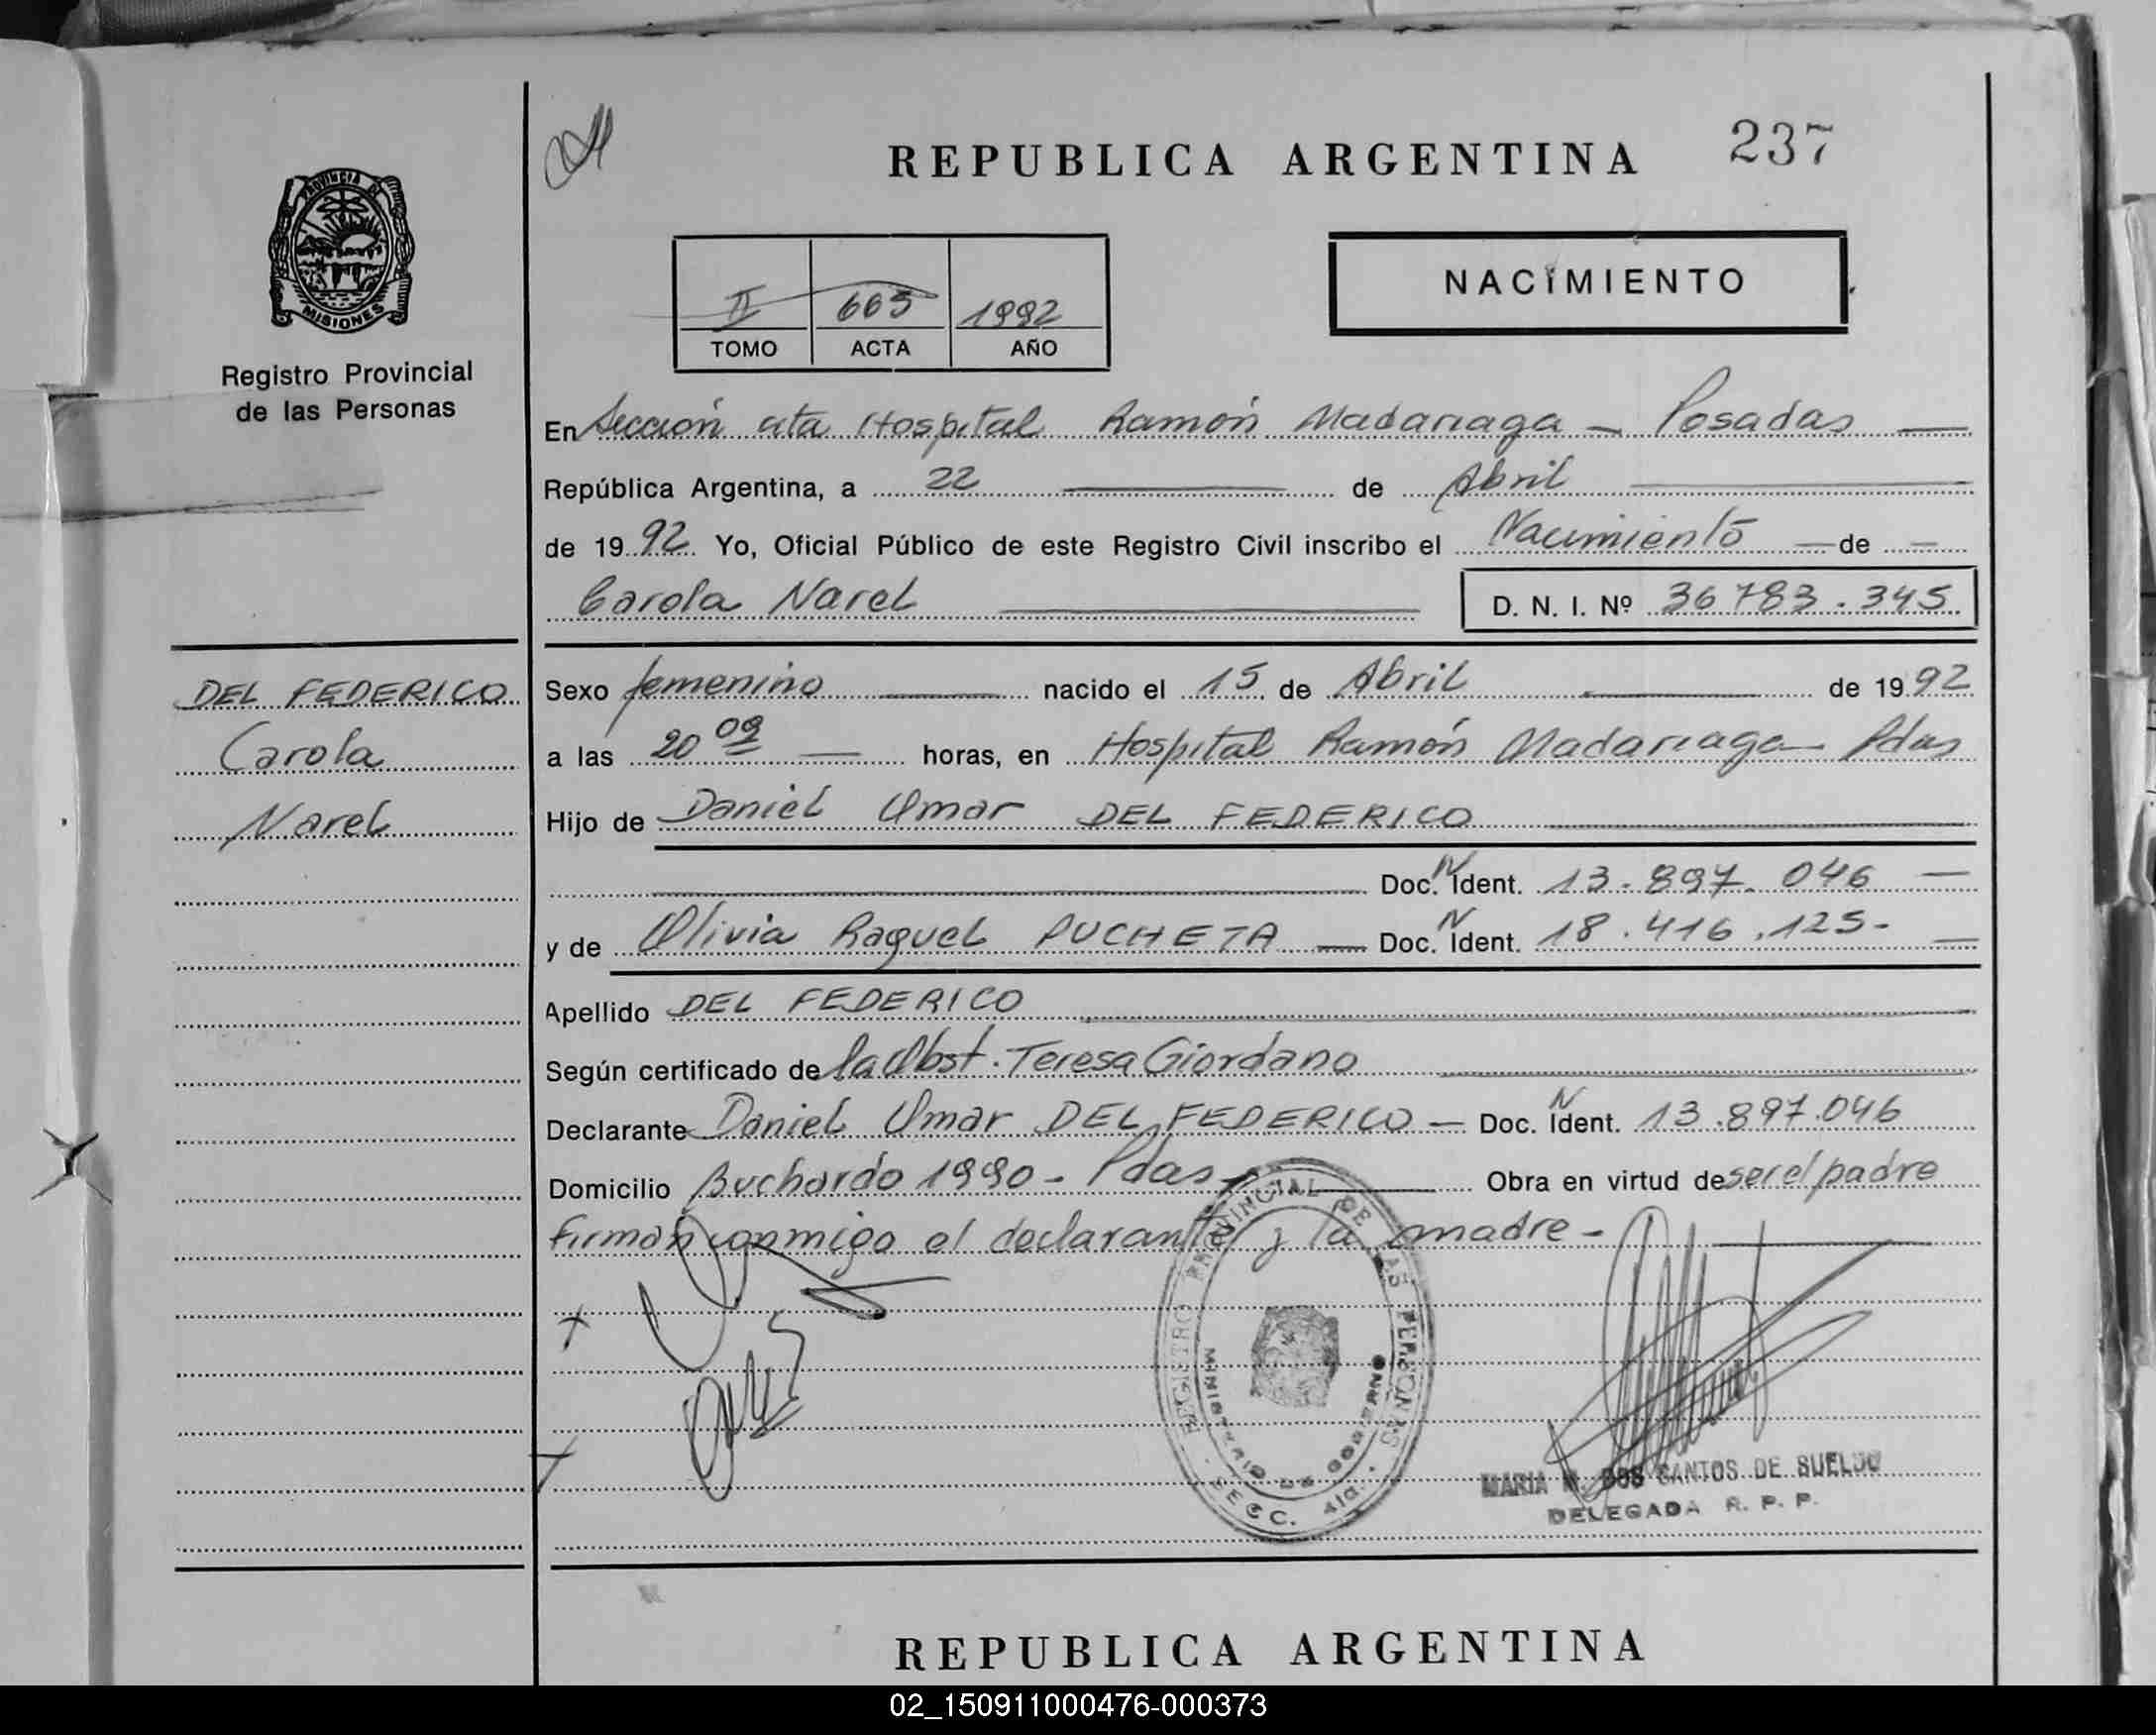 REPUBLICA ARGENTINA 237
PROVINCIA DE
MISIONES
Registro Provincial
de las Personas
NACIMIENTO
II 665 1992
TOMO ACTA AÑO
En Sección 4ta Hospital Ramón Madariaga - Posadas
República Argentina, a 22 de Abril
de 1992 Yo, Oficial Público de este Registro Civil inscribo el Nacimiento de
Carola Narel D. N. I. Nº 36783.345
DEL FEDERICO
Carola
Narel
Sexo femenino nacido el 15 de Abril de 1992
a las 20 09 horas, en Hospital Ramón Madariaga Pdas
Hijo de Daniel Omar DEL FEDERICO
Doc. N Ident. 13.897.046
y de Olivia Raquel PUCHETA Doc. N Ident. 18.416.125-
Apellido DEL FEDERICO
Según certificado de la Obst. Teresa Giordano
Declarante Daniel Omar DEL FEDERICO - Doc. N Ident. 13.897.046
Domicilio Buchardo 1990 - Pdas - Obra en virtud de ser el padre
firman conmigo el declarante y la madre -
REGISTRO PROVINCIAL DE LAS PERSONAS
MINISTERIO DE GOBIERNO
SECC. 4ta.
MARIA DOS SANTOS DE SUELDO
DELEGADA R. P. P.
REPUBLICA ARGENTINA
02_150911000476-000373